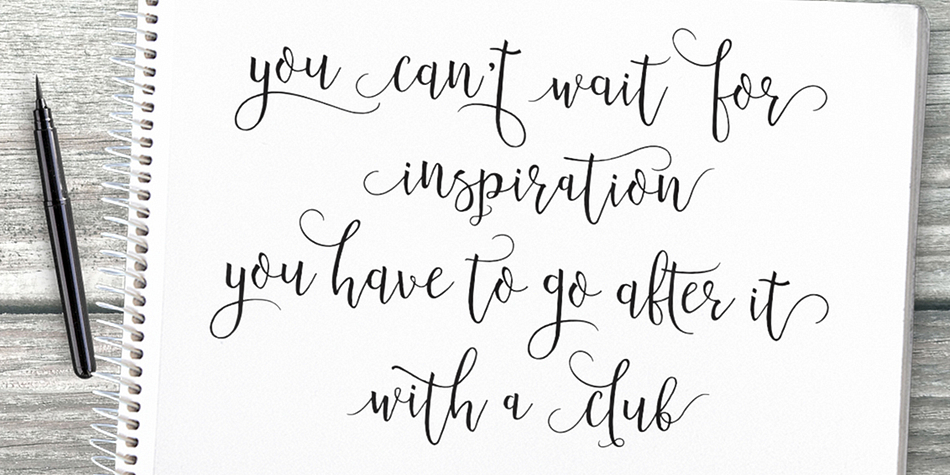 you can't wait for
inspiration
you have to go after it
with a club